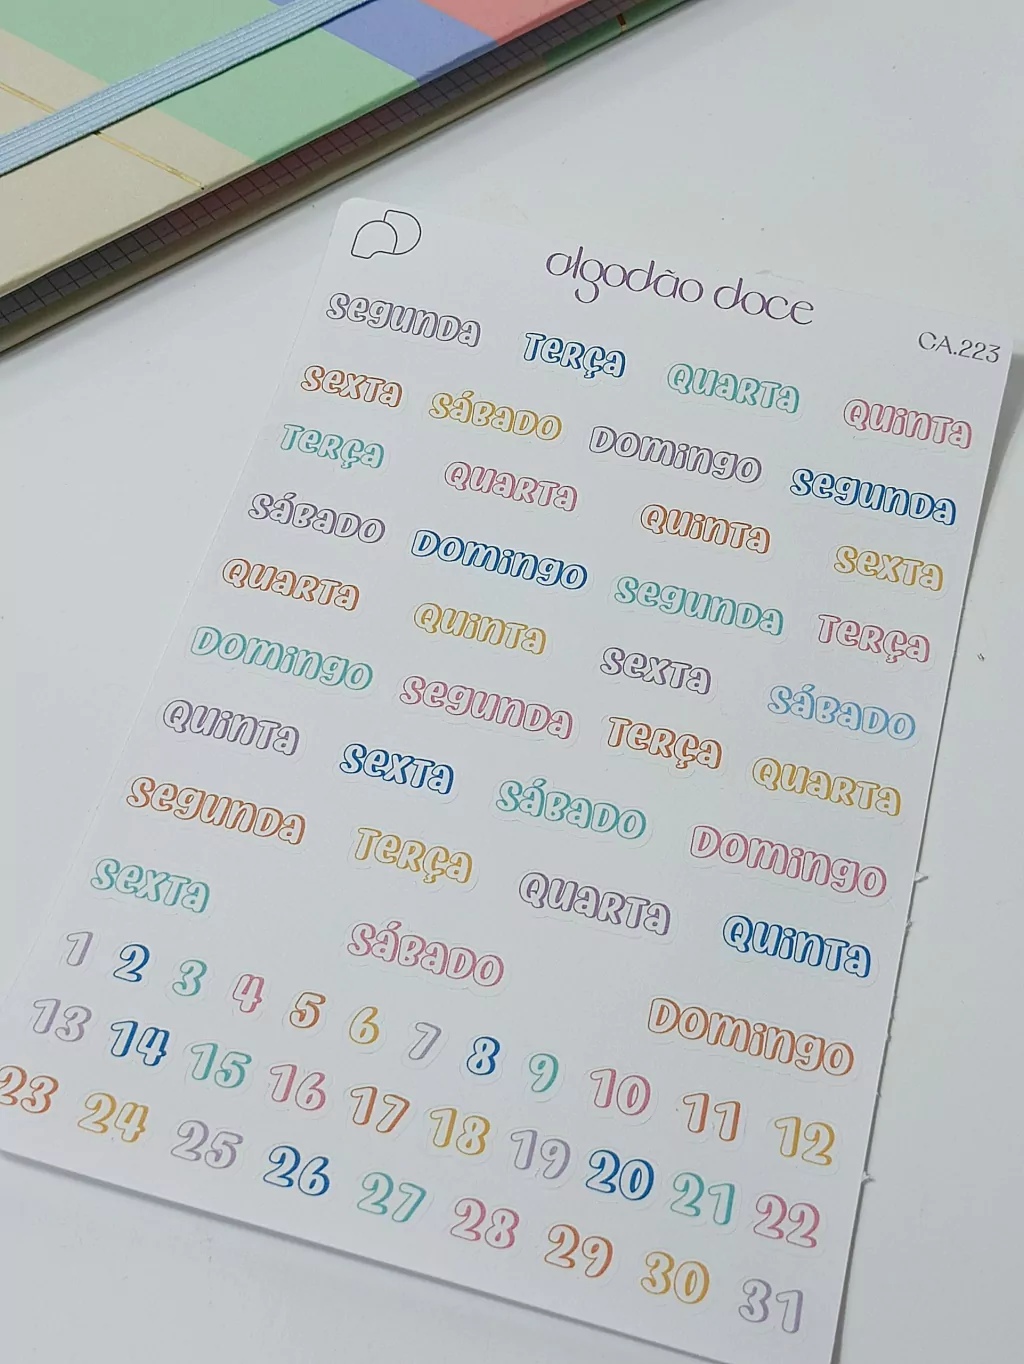 algodão doce
CA.223
segunda Terça Quarta Quinta
sexta sábado Domingo segunda
Terça Quarta Quinta sexta
sábado Domingo segunda Terça
Quarta Quinta sexta sábado
Domingo segunda Terça Quarta
Quinta sexta sábado Domingo
segunda Terça Quarta Quinta
sexta sábado Domingo
1 2 3 4 5 6 7 8 9 10 11 12
13 14 15 16 17 18 19 20 21 22
23 24 25 26 27 28 29 30 31